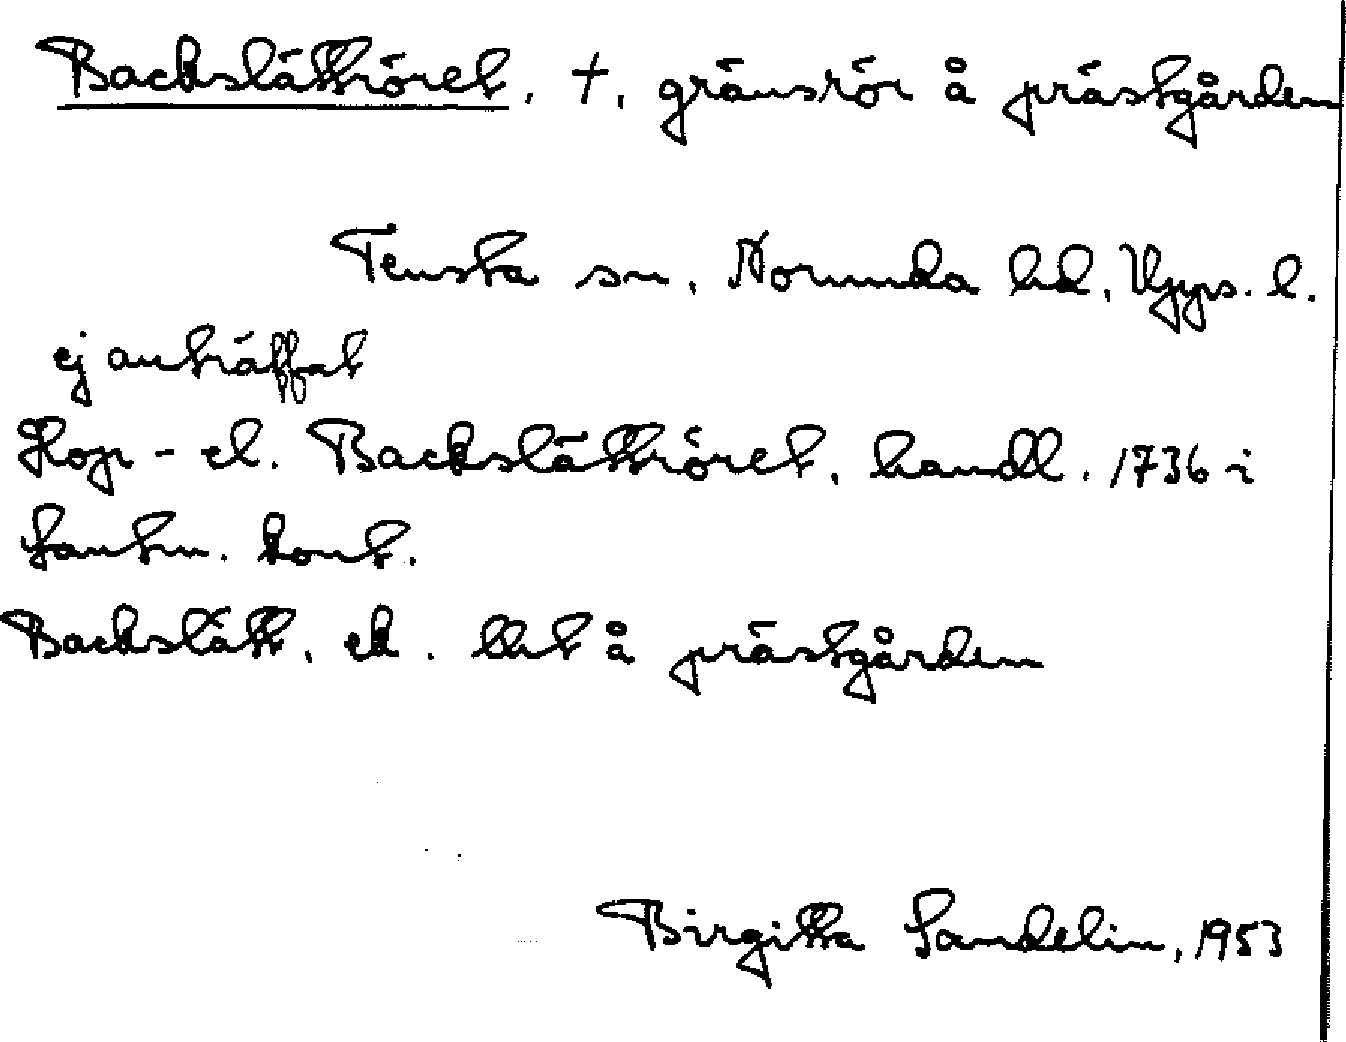 Backslättröret, †, gränsrör å prästgården
Tensta sn, Norunda hd, Upps. l.
ej anträffat
Hop- el. Backslättröret, handl. 1736 i
Lantm. kont.
Backslätt, ek. lht å prästgården
Birgitta Sandelin, 1953